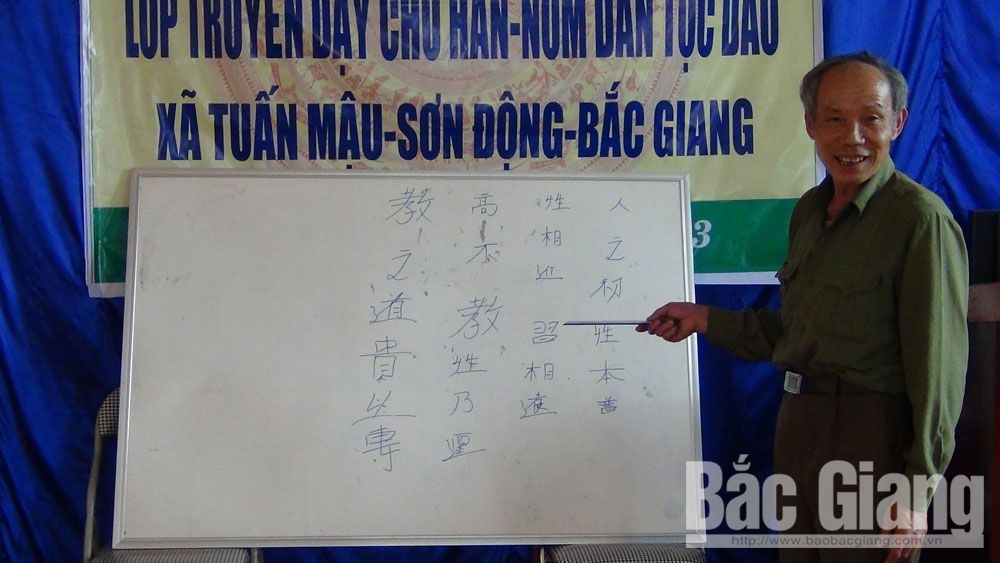 LỚP TRUYỀN DẠY CHỮ HÁN-NÔM DÂN TỘC DAO
XÃ TUẤN MẬU-SƠN ĐỘNG-BẮC GIANG
3
人之初性本善
性相近習相遠
高不教性乃遷
教之道貴以專
Bắc Giang
http://www.baobacgiang.com.vn